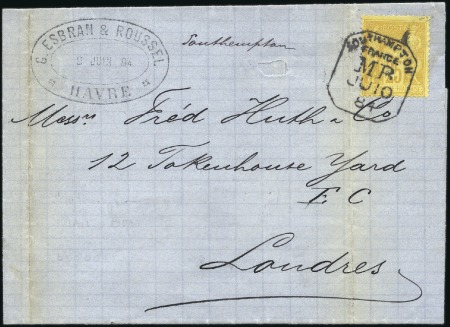 G. ESBRAN & ROUSSEL
9 JUIN 84
HAVRE
Southampton
SOUTHAMPTON
FRANCE
M.R.
JU 10
84
Messrs Fréd Huth & Co
12 Tokenhouse Yard
E C
Londres